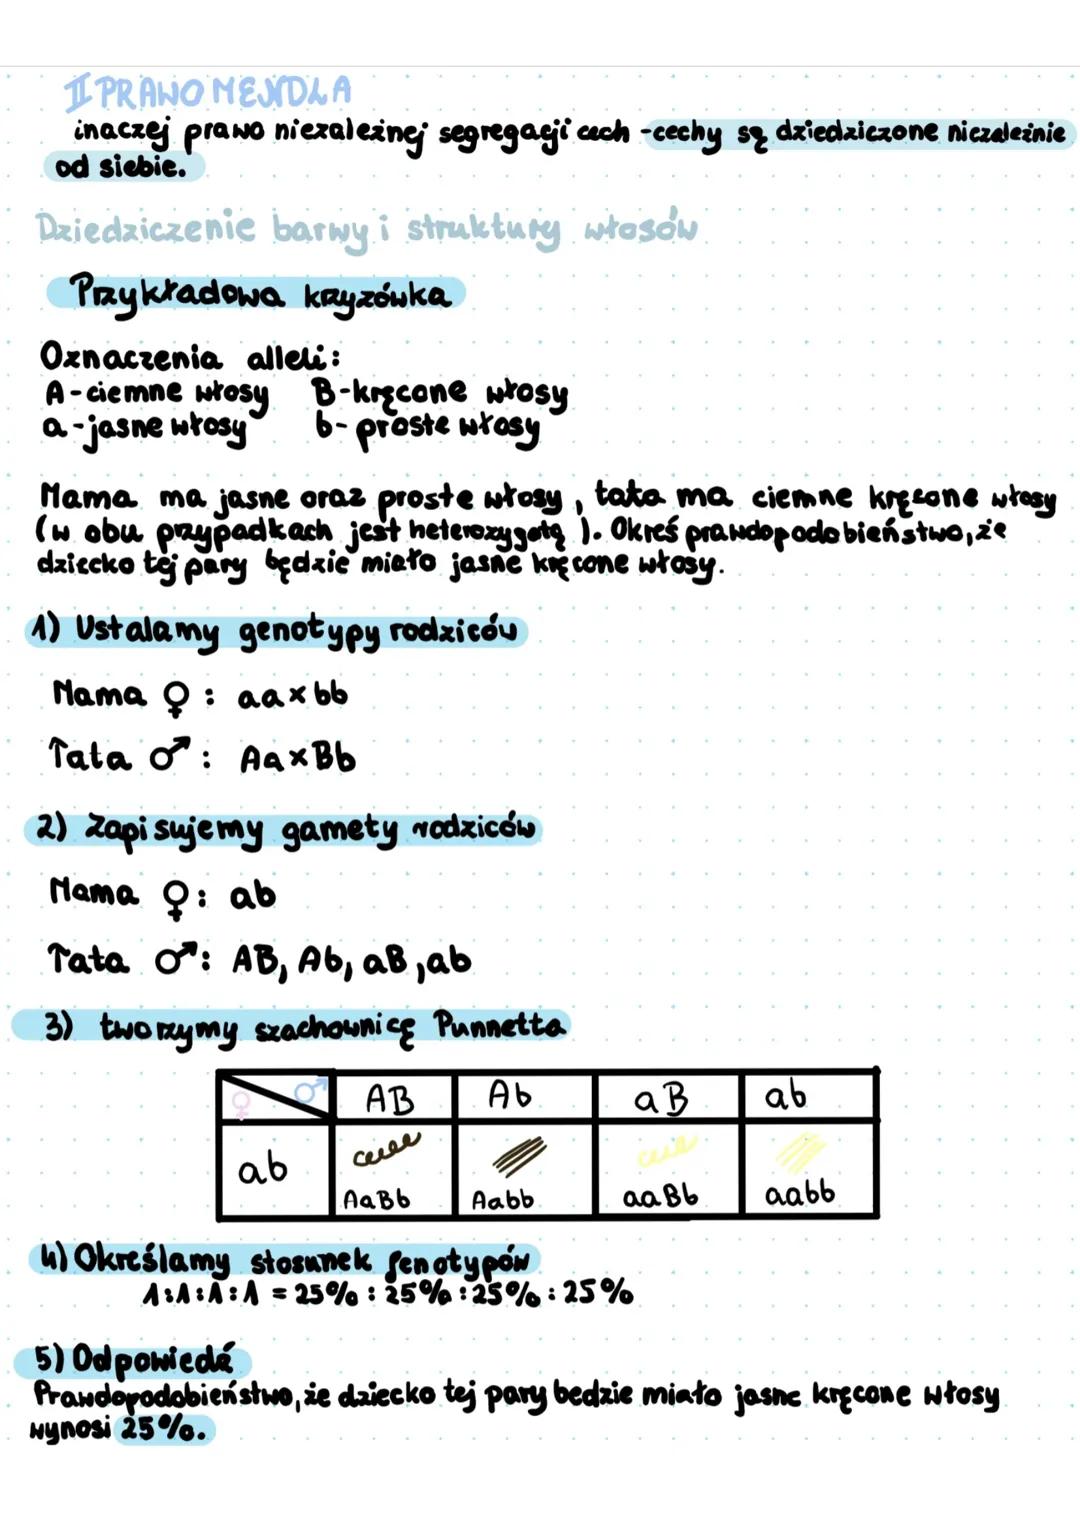 II PRAWO MENDLA
inaczej prawo niezależnej segregacji cech - cechy są dziedziczone niezależnie
od siebie.
Dziedziczenie barwy i struktury włosów
Przykładowa krzyżówka
Oznaczenia alleli:
A - ciemne włosy B - kręcone włosy
a - jasne włosy b - proste włosy
Mama ma jasne oraz proste włosy, tata ma ciemne kręcone włosy
(w obu przypadkach jest heterozygotą). Okreś prawdopodobieństwo, że
dziecko tej pary będzie miało jasne kręcone włosy.
1) Ustalamy genotypy rodziców
Mama ♀: aa x bb
Tata ♂: Aa x Bb
2) Zapisujemy gamety rodziców
Mama ♀: ab
Tata ♂: AB, Ab, aB, ab
3) tworzymy szachownicę Punnetta
♀ ♂ AB Ab aB ab
ab AaBb Aabb aaBb aabb
4) Określamy stosunek fenotypów
1:1:1:1 = 25% : 25% : 25% : 25%
5) Odpowiedź
Prawdopodobieństwo, że dziecko tej pary bedzie miało jasne kręcone włosy
wynosi 25%.